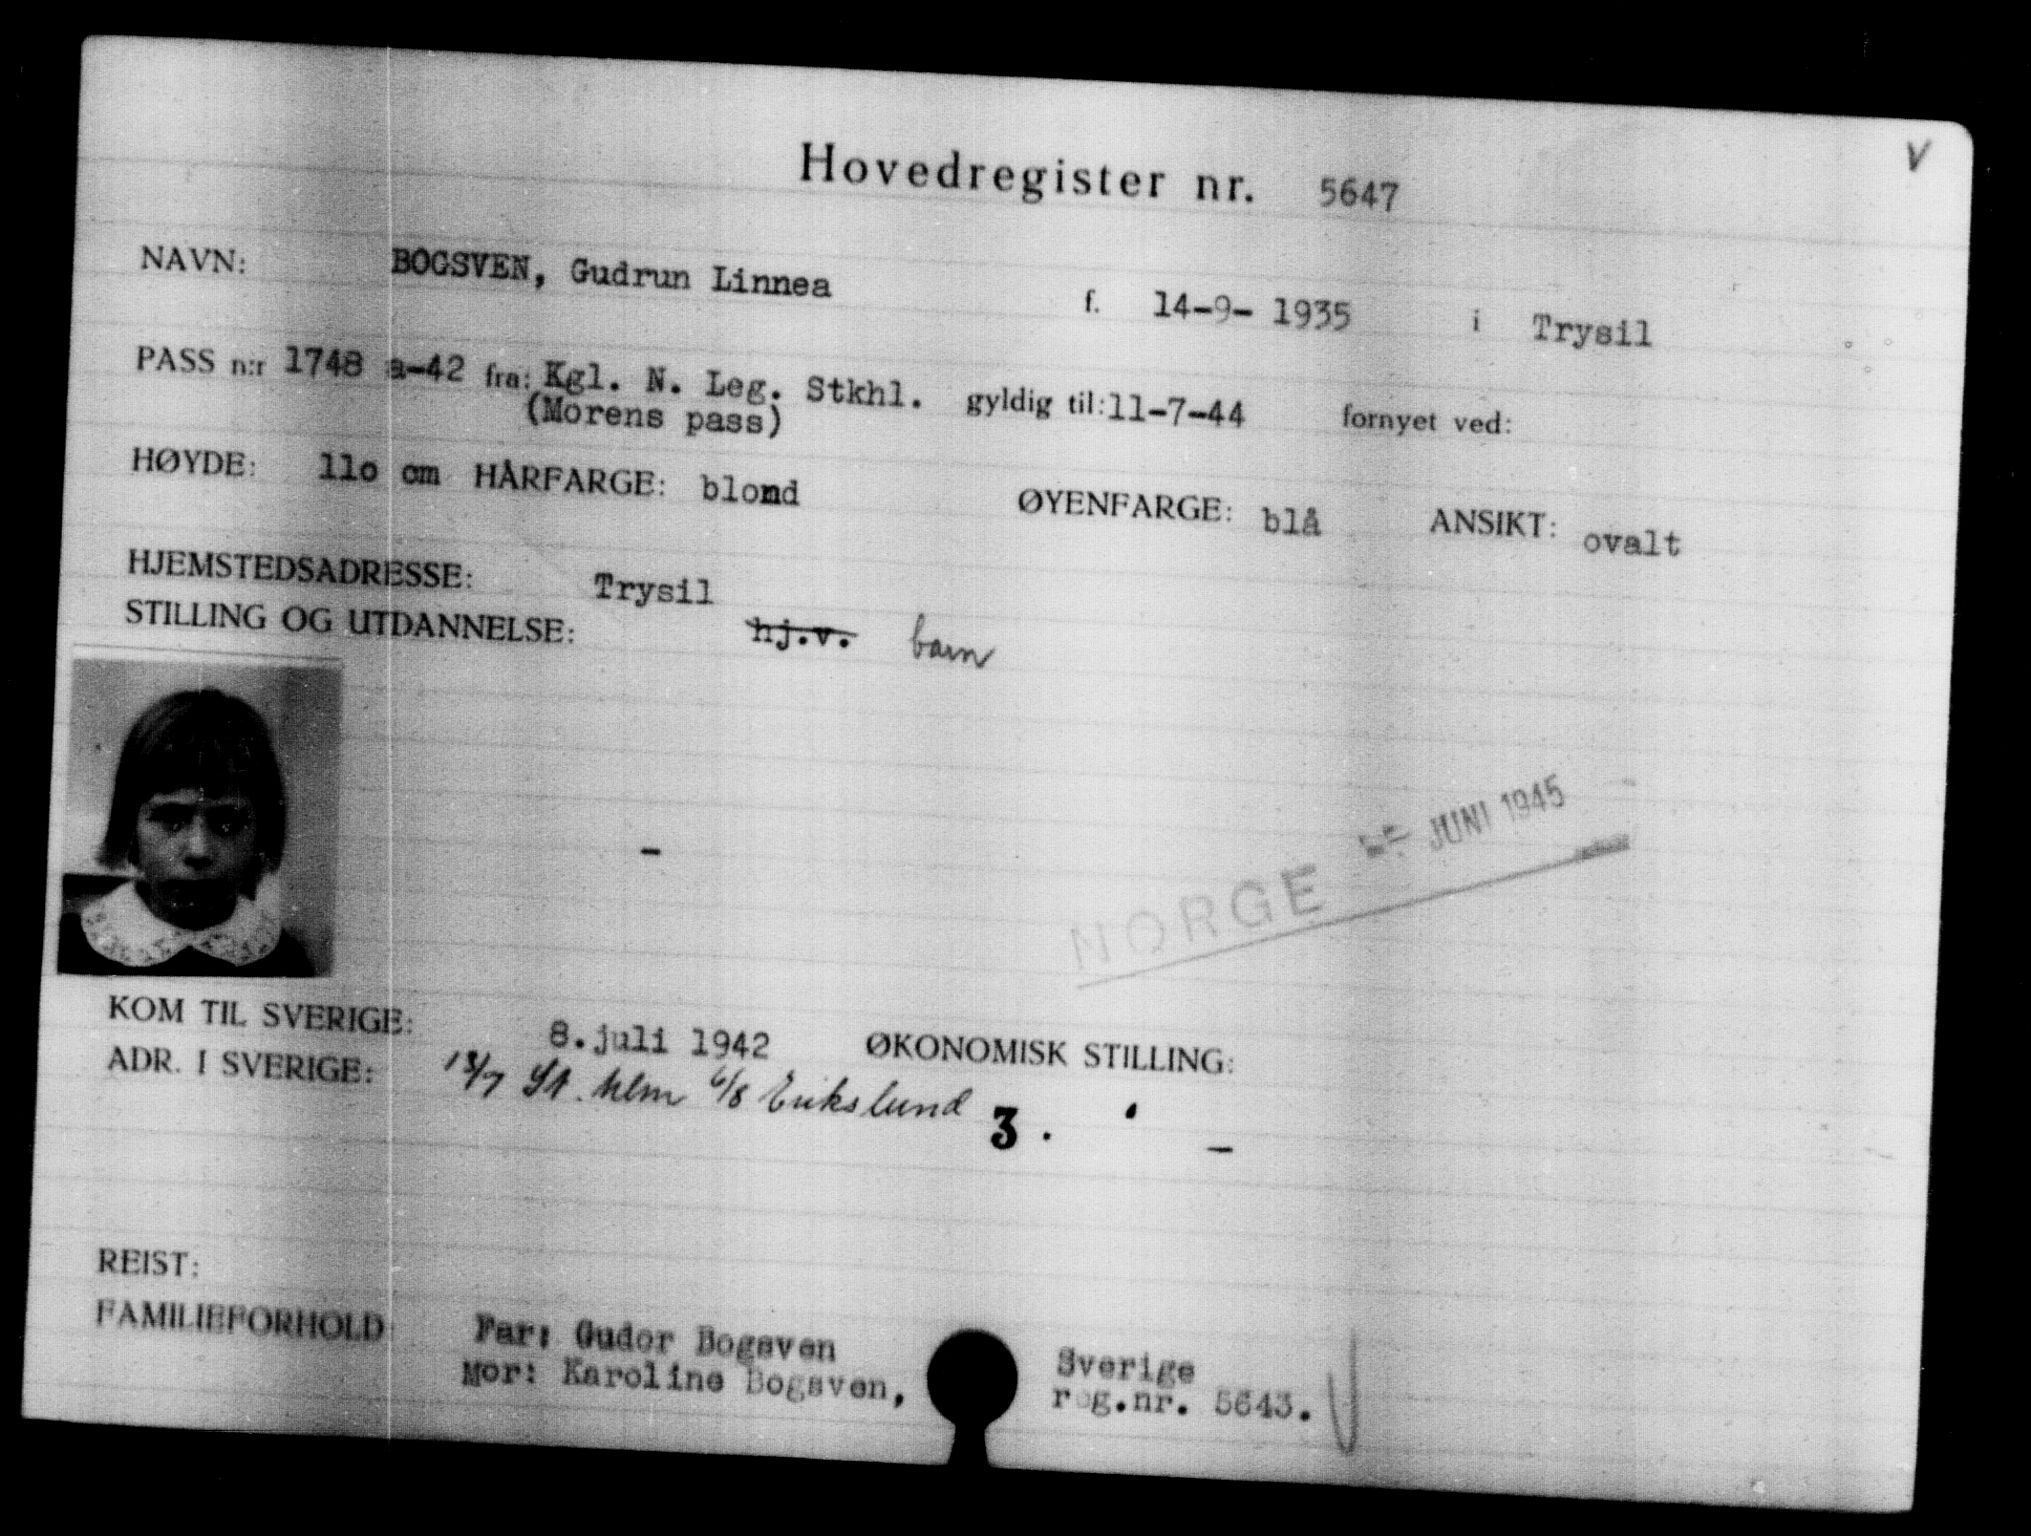 Hovedregister nr. 5647
v
NAVN: BOGSVEN, Gudrun Linnea f. 14-9- 1935 i Trysil
PASS n:r 1748 a-42 fra: Kgl. N. Leg. Stkhl. gyldig til: 11-7-44 fornyet ved:
(Morens pass)
HØYDE: 11o cm HÅRFARGE: blond ØYENFARGE: blå ANSIKT: ovalt
HJEMSTEDSADRESSE: Trysil
STILLING OG UTDANNELSE: hj.v. barn
-
NORGE JUNI 1945
KOM TIL SVERIGE: 8.juli 1942 ØKONOMISK STILLING:
ADR. I SVERIGE: 13/7 6/8 Erikslund 3 . -
REIST:
FAMILIEFORHOLD: Far: Gudor Bogsven Sverige
Mor: Karoline Bogsven, reg.nr. 5643.